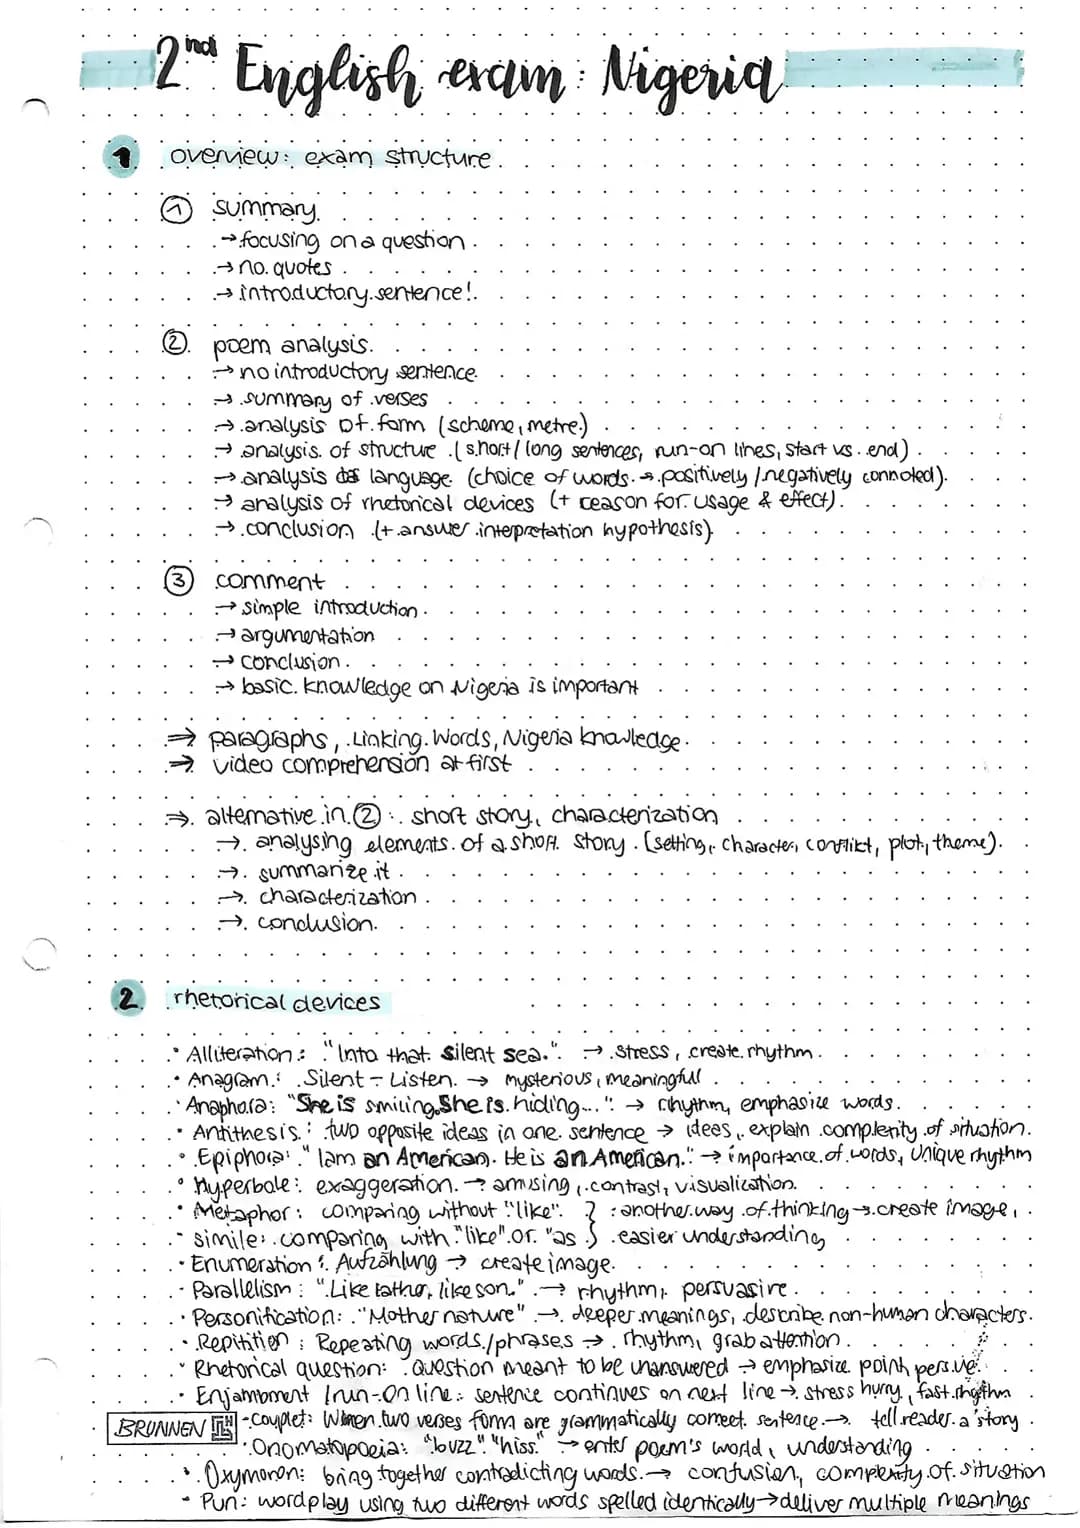 2nd English exam: Nigeria
1 overview: exam structure
1 summary
→ focusing on a question
→ no quotes
→ introductory sentence!
2 poem analysis
→ no introductory sentence
→ summary of verses
→ analysis of form (scheme, metre)
→ analysis of structure (short/long sentences, run-on lines, start vs. end)
→ analysis of language (choice of words → positively/negatively connoted)
→ analysis of rhetorical devices (+ reason for usage & effect)
→ conclusion (+ answer interpretation hypothesis)
3 comment
→ simple introduction
→ argumentation
→ conclusion
→ basic knowledge on Nigeria is important
⇒ paragraphs, Linking Words, Nigeria knowledge
⇒ video comprehension at first
⇒ alternative in 2: short story, characterization
→ analysing elements of a short story (setting, character, conflikt, plot, theme)
→ summarize it
→ characterization
→ conclusion
2 rhetorical devices
• Alliteration: "Into that silent sea." → stress, create rhythm
• Anagram: Silent - Listen → mysterious, meaningful
• Anaphora: "She is smiling. She is hiding..." → rhythm, emphasize words
• Antithesis: two opposite ideas in one sentence → idees, explain complexity of situation
• Epiphora: "I am an American. He is an American." → importance of words, unique rhythm
• Hyperbole: exaggeration → amusing, contrast, visualization
• Metaphor: comparing without "like" } : another way of thinking → create image,
• simile: comparing with "like" or "as } easier understanding
• Enumeration: Aufzählung → create image
• Parallelism: "Like father, like son." → rhythm, persuasive
• Personification: "Mother nature" → deeper meanings, describe non-human characters
• Repitition: Repeating words/phrases → rhythm, grab attention
• Rhetorical question: Question meant to be unanswered → emphasize point,
• Enjambment/run-on line: sentence continues on next line → stress hurry, fast rhythm
BRUNNEN - couplet: When two verses form are grammatically correct sentence → tell reader a story
• Onomatopoeia: "buzz" "hiss" → enter poem's world, understanding
• Oxymoron: bring together contradicting words → confusion, complexity of situation
• Pun: wordplay using two different words spelled identically → deliver multiple meanings